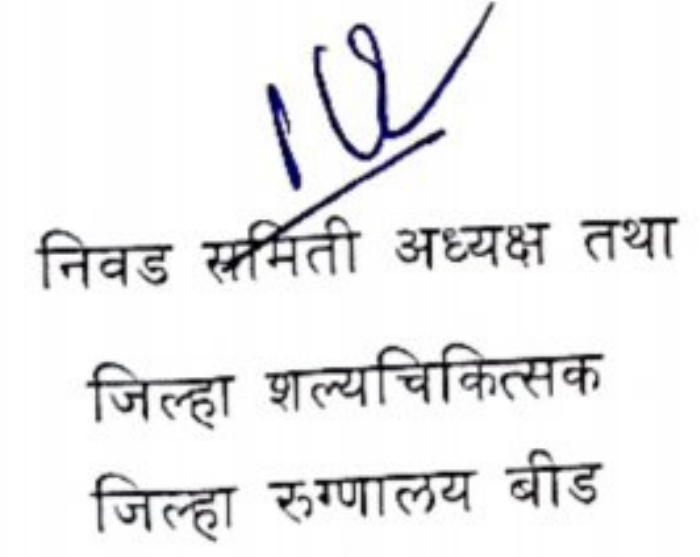 निवड समिती अध्यक्ष तथा
जिल्हा शल्यचिकित्सक
जिल्हा रुग्णालय बीड